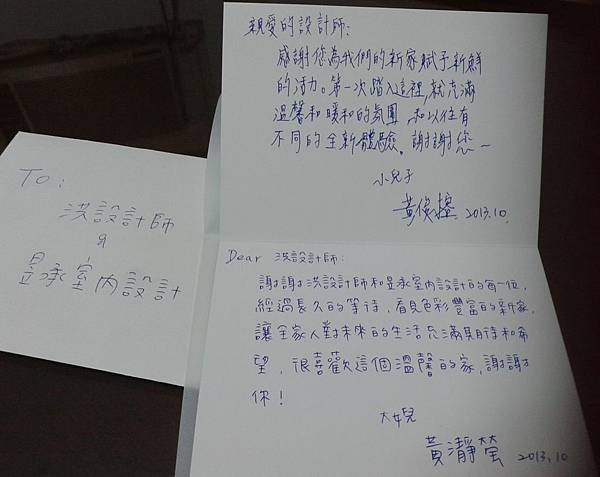 親愛的設計師:
感謝您為我們的新家賦予新鮮
的活力。第一次踏入這裡,就充滿
溫馨和暖和的氛圍,和以往有
不同的全新體驗。謝謝您~
小兒子
黃俊 2013.10.
To:
洪設計師
&
昱承室內設計
Dear 洪設計師:
謝謝洪設計師和昱承室內設計的每一位,
經過長久的等待,看見色彩豐富的新家,
讓全家人對未來的生活充滿期待和希
望,很喜歡這個溫馨的家,謝謝
你!
大女兒
黃瀞瑩 2013.10